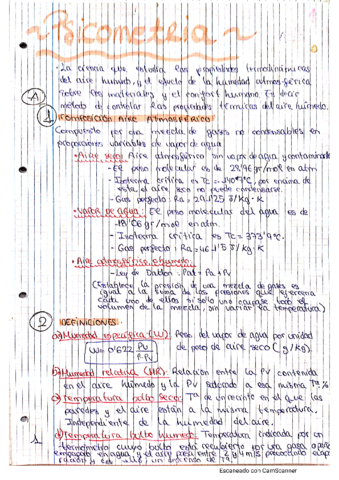 ~Psicometria~
- La ciencia que estudia las propiedades termodinámicas
del aire húmedo, y el efecto de la humedad atmosférica
sobre los materiales y el confort humano. Es decir
método de controlar las propiedades térmicas del aire húmedo.
A
1 COMPOSICIÓN AIRE ATMOSFÉRICO
Compuesto por una mezcla de gases no condensables en
proporciones variables de vapor de agua
• Aire seco: Aire atmosférico sin vapor de agua y contaminante
- El peso molecular es de gr/mol en atm.
- Isoterma crítica es Tc = , por encima de
esta el aire seco no puede condensarse.
- Gas perfecto: Ra = J/Kg·K
• Vapor de agua: El peso molecular del agua es de
gr/mol en atm.
- Isoterma crítica es Tc =
- Gas perfecto: Ra = J/Kg·K
• Aire atmosférico o húmedo:
- Ley de Dalton: Pat = Pa + Pv
(Establece la presión de una mezcla de gases es
igual a la suma de las presiones que ejercería
cada uno de ellos si solo uno ocupase todo el
volumen de la mezcla, sin variar la temperatura)
2 DEFINICIONES
a) Humedad específica (W): Peso del vapor de agua por unidad
W = 0'622 Pv / P-Pv
de peso de aire seco (g/kg).
b) Humedad relativa (HR): Relación entre la Pv contenida
en el aire húmedo y la Pv saturado a esa misma Tª %
c) Temperatura bulbo seco: Tª de un recinto en el que las
paredes y el aire están a la misma temperatura.
Independiente de la humedad del aire.
d) Temperatura bulbo húmedo: Temperatura indicada por un
termómetro cuyo bulbo está recubierto por una gasa
empapado en agua, y el aire pasa entre 2 y 4 m/s
1
Escaneado con CamScanner